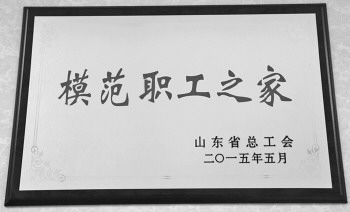 模范职工之家
山东省总工会
二〇一五年五月